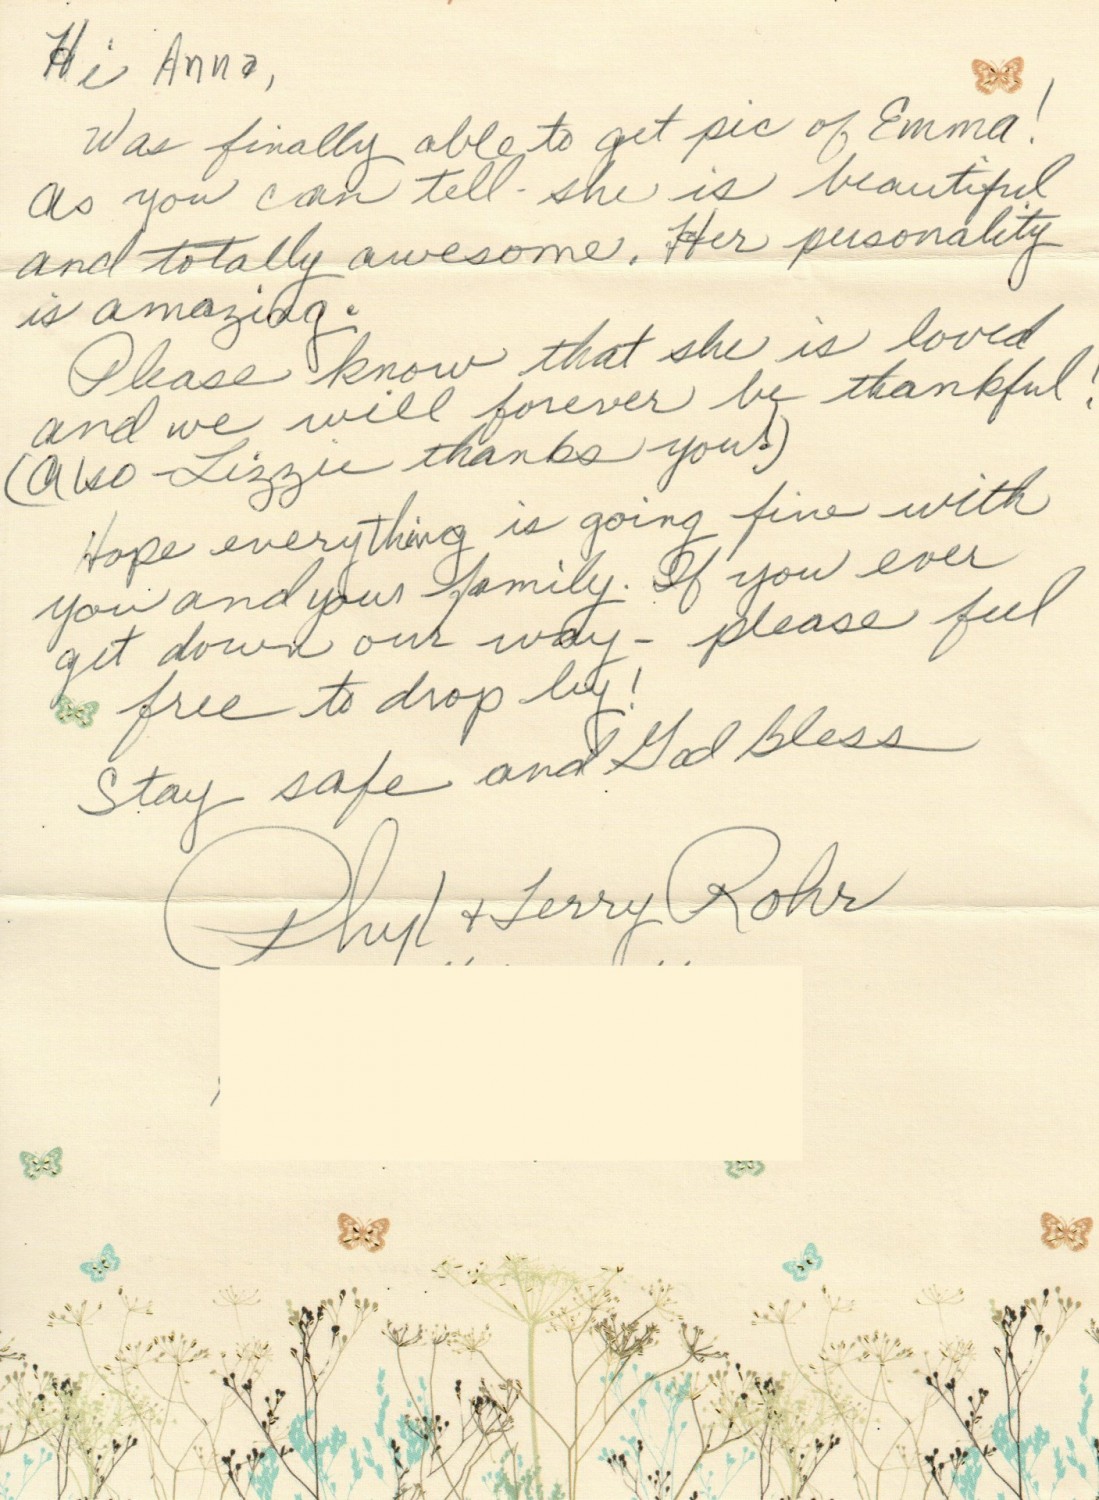 Hi Anna,
Was finally able to get pic of Emma!
As you can tell - she is beautiful
and totally awesome. Her personality
is amazing.
Please know that she is loved
and we will forever be thankful!
(Also - Lizzie thanks you!)
Hope everything is going fine with
you and your family. If you ever
get down our way - please feel
free to drop by!
Stay safe and God Bless
Phyl + Terry Rohr